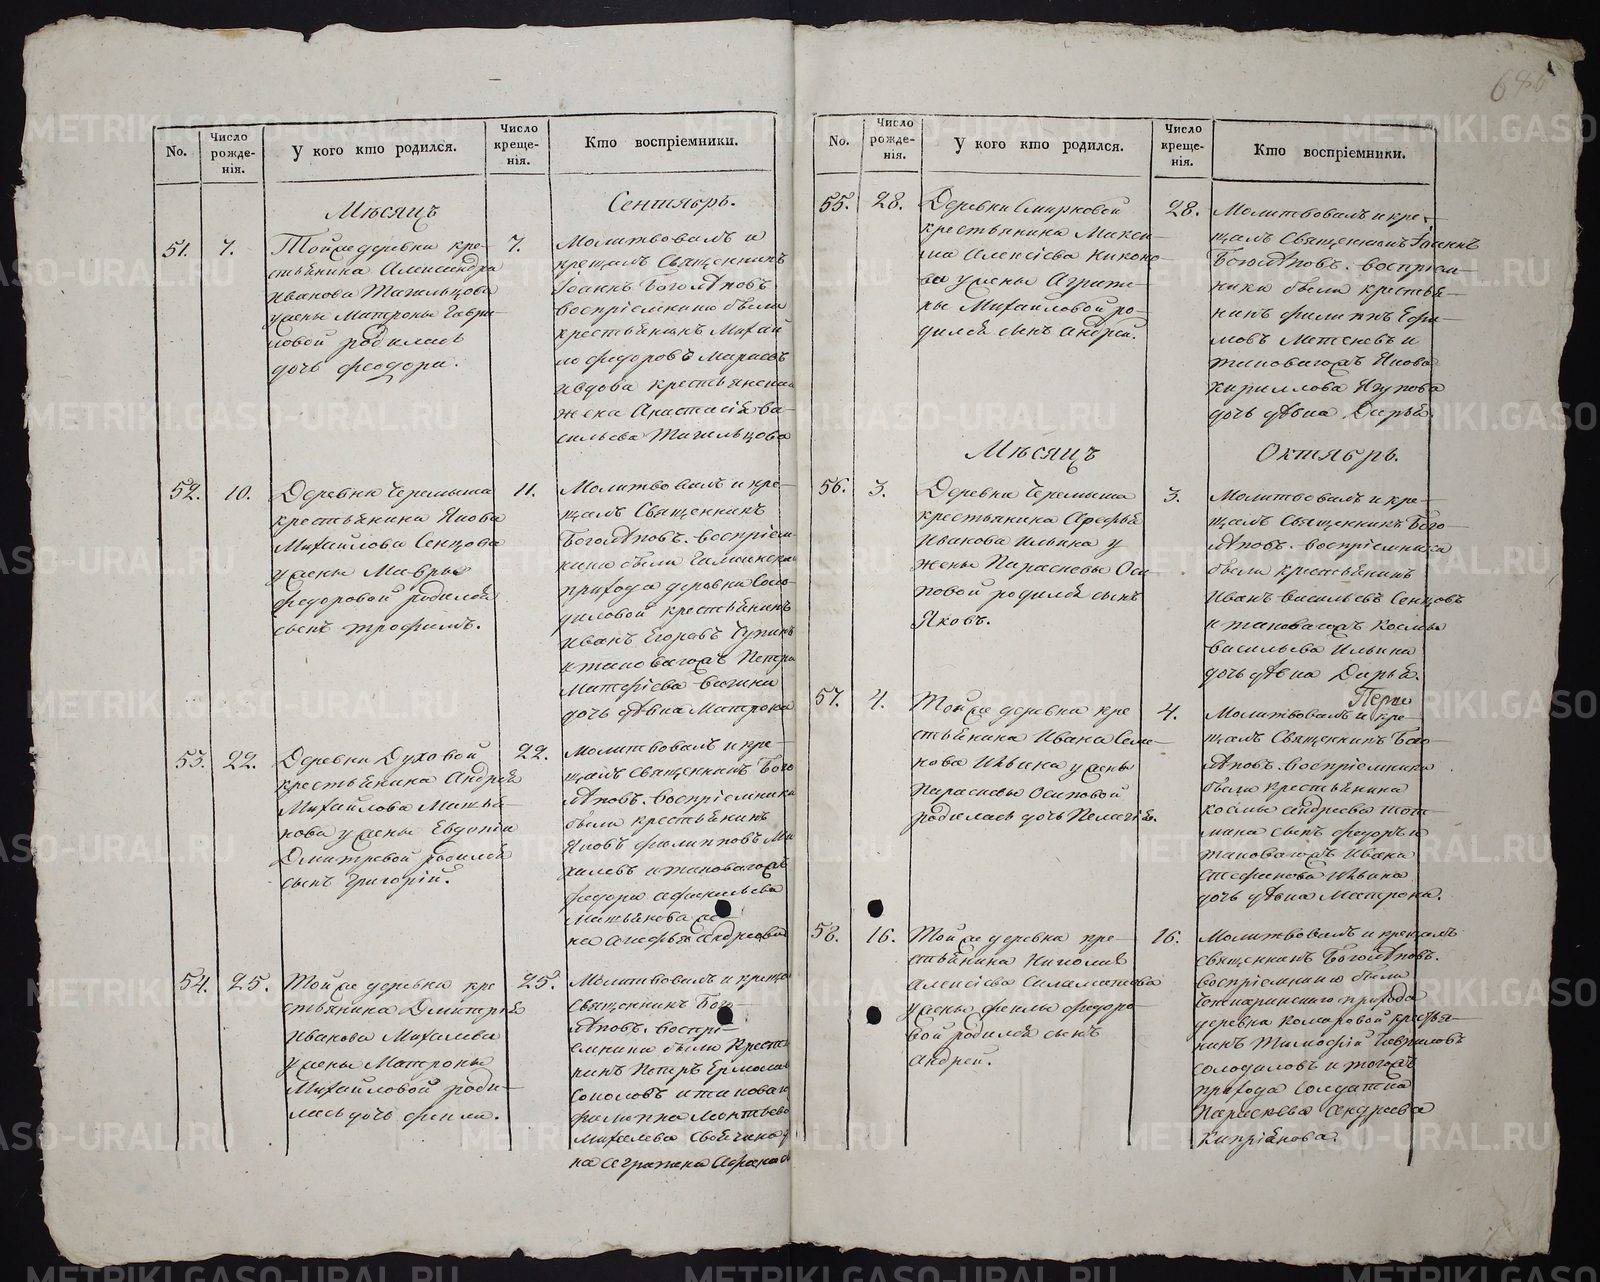 No.
Число рожде-нія.
У кого кто родился.
Число креще-нія.
Кто воспріемники.
Мѣсяцъ
Сентябрь.
51.
7.
Тойже деревни кре-
стьянина Александра
Иванова Тагильцова
у жены Матроны Гаври-
ловой родилась
дочь Феодора.
7.
Молитвовалъ и
крещалъ Священникъ
Іоаннъ Боголѣповъ
воспріемники были
крестьянинъ Михай
ло Федоровъ
вдова крестьянская
жена Анастасія Ва-
сильева Тагильцова
52.
10.
Деревни Черемыша
крестьянина Якова
Михайлова Сенцова
у жены Мавры
Федоровой родился
сынъ Трофимъ.
11.
Молитвовалъ и кре-
щалъ Священникъ
Боголѣповъ. воспріем-
ники были
прихода деревни Соло-
диловой крестьянинъ
Иванъ Егоровъ Чупинъ
и таковагожъ Петра
Матфіева
дочь дѣвка Матрона
53.
22.
Деревни Духовой
крестьянина Андрея
Михайлова Матья-
кова у жены Евдокіи
Дмитревой родился
сынъ Григорій.
22.
Молитвовалъ и кре-
щалъ Священникъ Бого
лѣповъ. воспріемники
были крестьянинъ
Яковъ Филипповъ Ми
халевъ и таковагожъ
Федора
Матьякова же-
на Агафья Андреева
54.
25.
Тойже деревни кре
стьянина Дмитрія
Иванова Михалева
у жены Матроны
Михайловой роди-
лась дочь Фекла.
25.
Молитвовалъ и крещал
Священникъ Бого-
лѣповъ. воспрі-
емники были Крестья
нинъ Петръ Ермолаев
Соколовъ и таковаго
Филиппа Леонтьева
Михалева
на Аграпена
No.
Число рожде-нія.
У кого кто родился.
Число креще-нія.
Кто воспріемники.
55.
28.
Деревни Смирновой
крестьянина Макси-
ма Алексіева Никоно-
ва у жены Агрипи-
ны Михайловой ро-
дился сынъ Андрей.
28.
Молитвовалъ и кре-
щалъ Священникъ Іоаннъ
Боголѣповъ. воспріем-
ники были крестья-
нинъ Филиппъ Ефи-
мовъ Метеневъ и
таковагожъ Якова
Кириллова Якупова
дочь дѣвка Дарья.
Мѣсяцъ
Октябрь.
56.
3.
Деревни Черемыша
крестьянина Арефья
Иванова Ильина у
жены Парасковьи Оси-
повой родился сынъ
Яковъ.
3.
Молитвовалъ и кре-
щалъ Священникъ Бого-
лѣповъ. воспріемники
были крестьянинъ
Иванъ Васильевъ Сенцовъ
и таковагожъ Космы
Васильева Ильина
дочь дѣвка Дарья.
57.
4.
Тойже деревни кре
стьянина Ивана Семе-
нова Ильина у жены
Парасковьи Осиповой
родилась дочь Пелагія.
4.
Молитвовалъ и кре-
щалъ Священникъ Бого-
лѣповъ. воспріемники
были крестьянина
Космы Андреева
сынъ Федоръ и
таковагожъ Ивана
Стефанова Ильина
дочь дѣвка Матрона.
58.
16.
Тойже деревни кре-
стьянина Николая
Алексіева Силаматова
у жены Феклы Федоро
вой родился сынъ
Андрей.
16.
Молитвовалъ и крещалъ
Священникъ Боголѣповъ.
воспріемники были
прихода
деревни Комаровой крестья-
нинъ Тимофей Гавриловъ
Солодиловъ и тогожъ
прихода Солдатка
Параскева Андреева
Кипріянова.